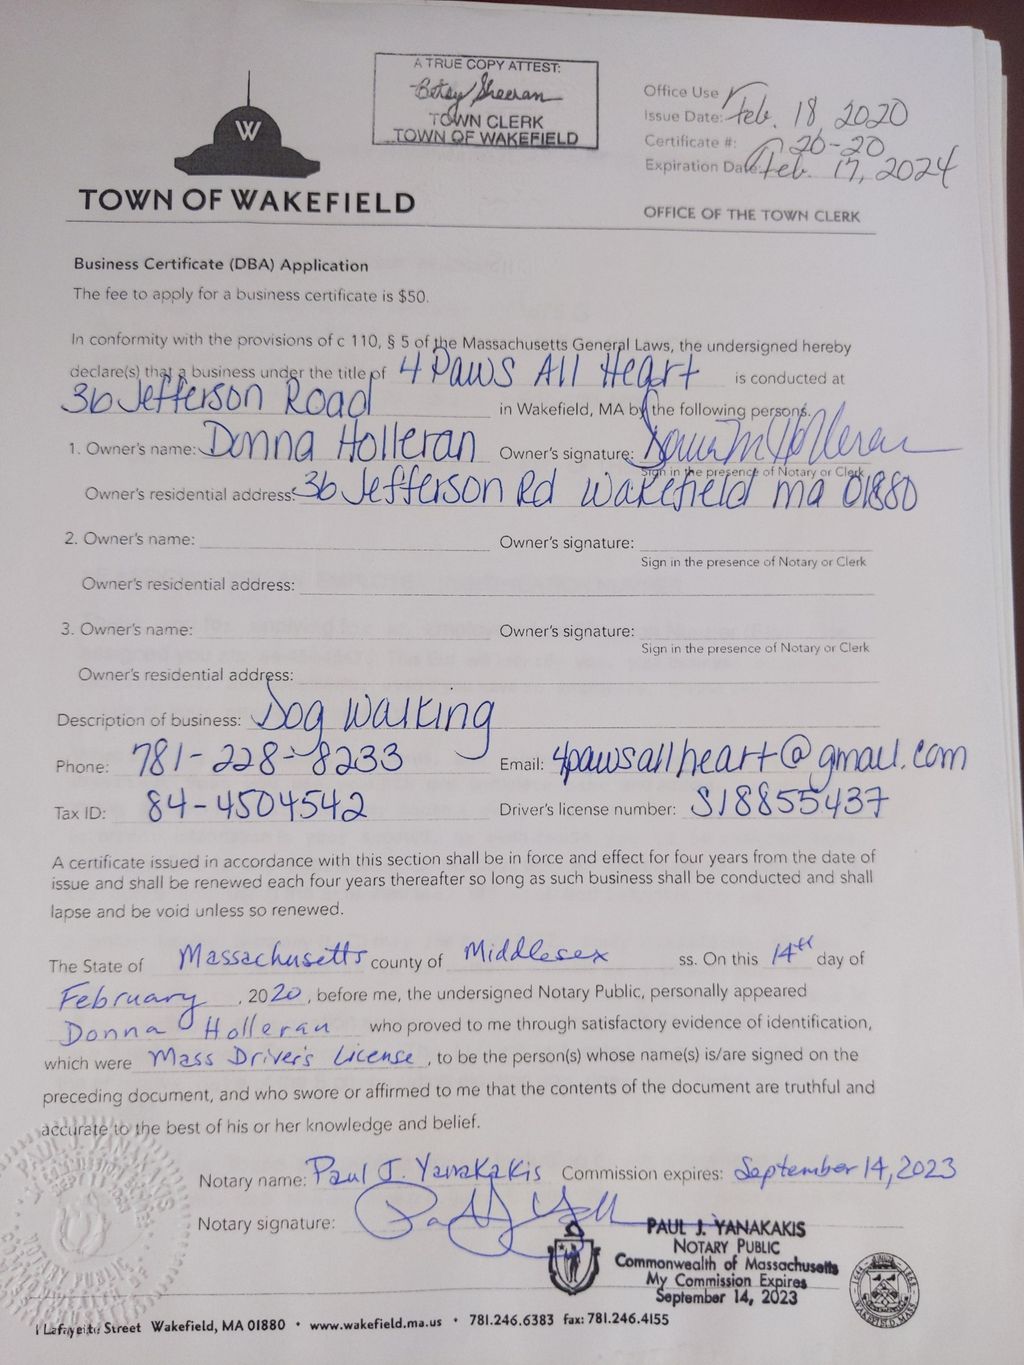 A TRUE COPY ATTEST:
Betsy Sheeran
TOWN CLERK
TOWN OF WAKEFIELD
Office Use
Issue Date: Feb. 18 2020
Certificate #: 20-20
Expiration Date: Feb. 17, 2024
W
TOWN OF WAKEFIELD
OFFICE OF THE TOWN CLERK
Business Certificate (DBA) Application
The fee to apply for a business certificate is $50.
In conformity with the provisions of c 110, § 5 of the Massachusetts General Laws, the undersigned hereby
declare(s) that a business under the title of 4 Paws All Heart is conducted at
36 Jefferson Road in Wakefield, MA by the following persons.
1. Owner's name: Donna Holleran Owner's signature: Donna M Holleran
Sign in the presence of Notary or Clerk
Owner's residential address: 36 Jefferson Rd Wakefield ma 01880
2. Owner's name: Owner's signature:
Sign in the presence of Notary or Clerk
Owner's residential address:
3. Owner's name: Owner's signature:
Sign in the presence of Notary or Clerk
Owner's residential address:
Description of business: Dog Walking
Phone: 781-228-8233 Email: 4pawsallheart@gmail.com
Tax ID: 84-4504542 Driver's license number: S18855437
A certificate issued in accordance with this section shall be in force and effect for four years from the date of
issue and shall be renewed each four years thereafter so long as such business shall be conducted and shall
lapse and be void unless so renewed.
The State of Massachusetts county of Middlesex ss. On this 14th day of
February, 2020, before me, the undersigned Notary Public, personally appeared
Donna Holleran who proved to me through satisfactory evidence of identification,
which were Mass Driver's License, to be the person(s) whose name(s) is/are signed on the
preceding document, and who swore or affirmed to me that the contents of the document are truthful and
accurate to the best of his or her knowledge and belief.
Notary name: Paul J. Yanakakis Commission expires: September 14, 2023
Notary signature:
PAUL J. YANAKAKIS
NOTARY PUBLIC
Commonwealth of Massachusetts
My Commission Expires
September 14, 2023
1 Lafayette Street Wakefield, MA 01880 • www.wakefield.ma.us • 781.246.6383 fax: 781.246.4155